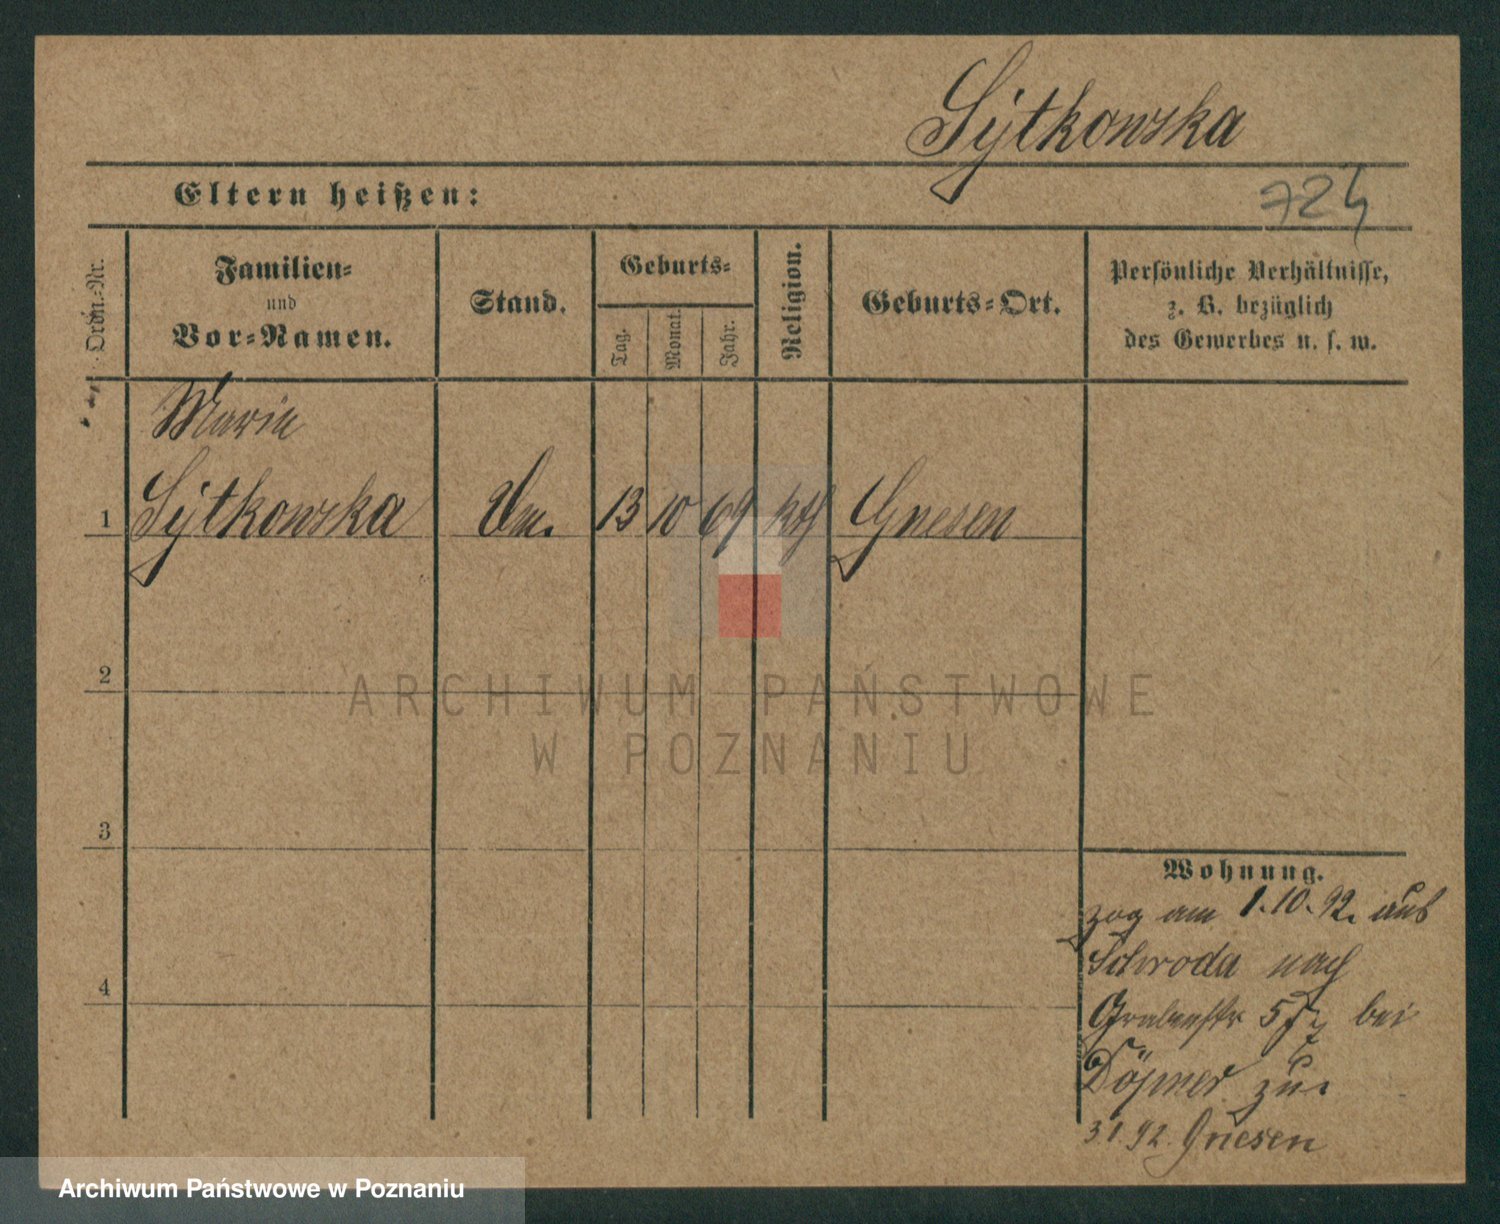 Sytkowska
Eltern heißen:
724
Ordn.-Nr.
Familien-
und
Vor-Namen.
Stand.
Geburts-
Tag.
Monat.
Jahr.
Religion.
Geburts-Ort.
Persönliche Verhältnisse,
z. B. bezüglich
des Gewerbes u. s. w.
Maria
1 Sytkowska 13 10 69 kth Gnesen
2
3
4
Wohnung.
zog am 1.10.92. aus
Schroda nach
Grabenstr 5 bei
zu.
92. Gnesen
ARCHIWUM PAŃSTWOWE
W POZNANIU
Archiwum Państwowe w Poznaniu